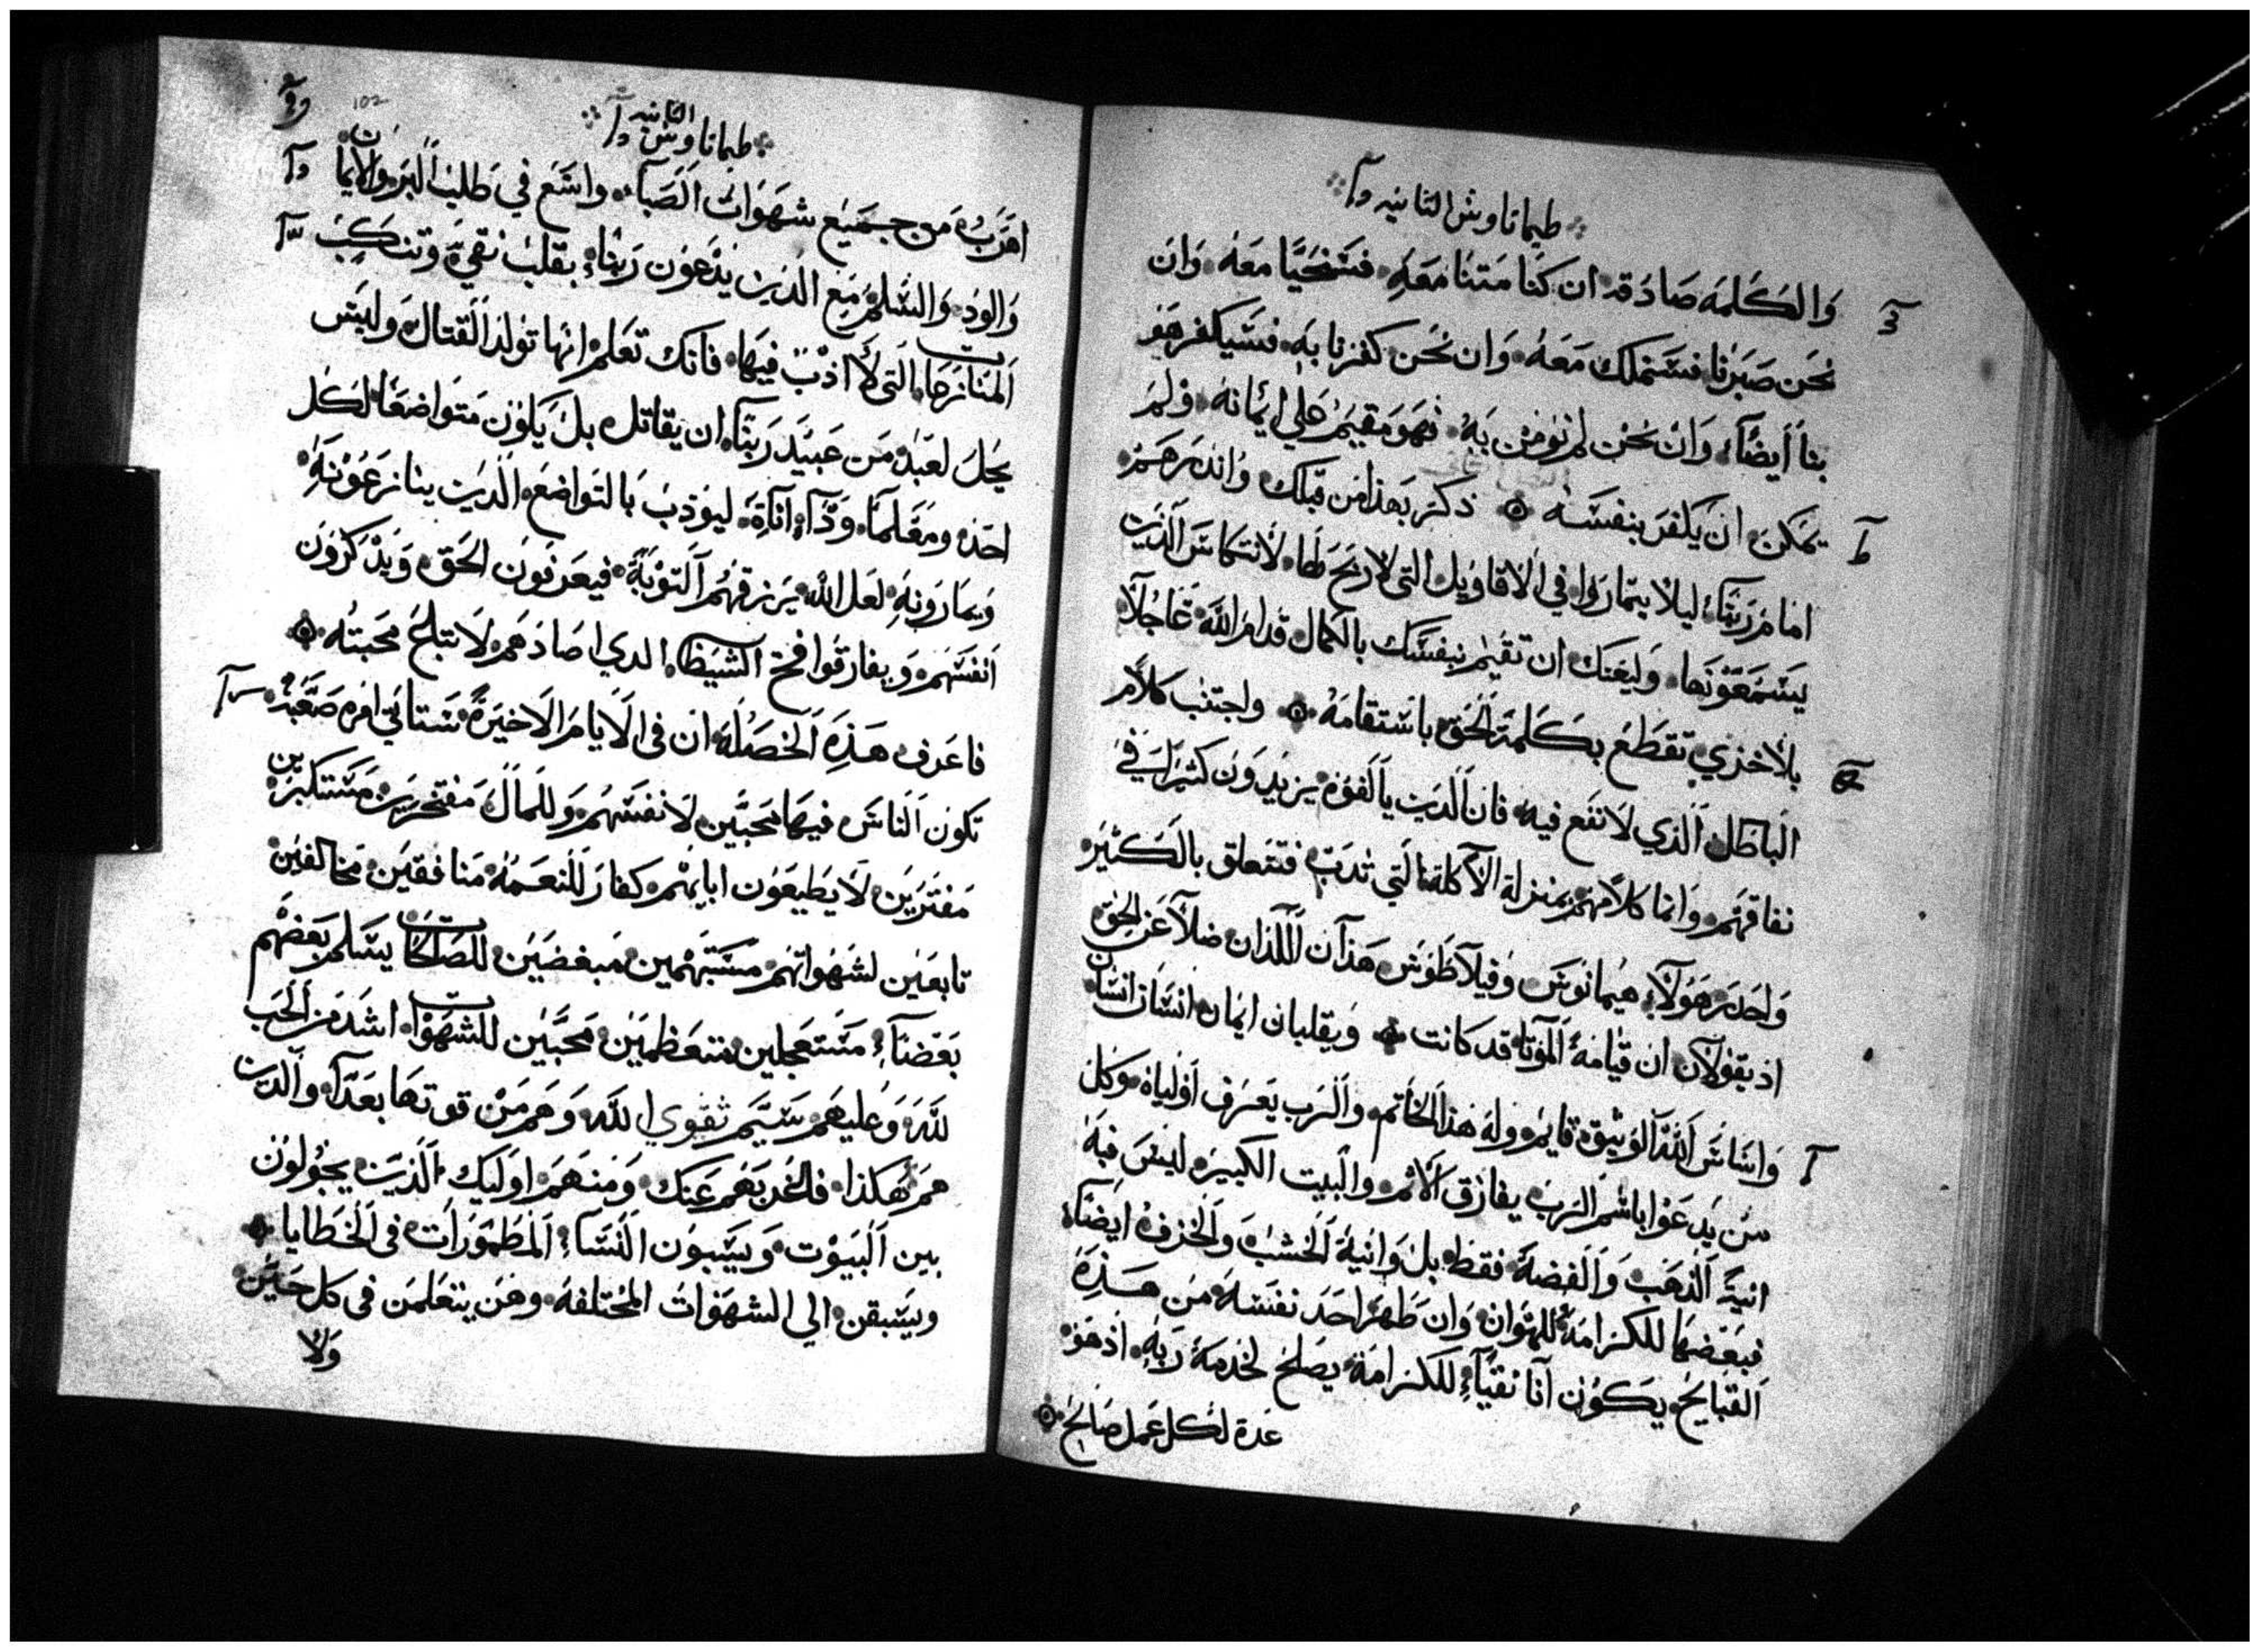 طيماتاوش الثانيه
والكلمه صادقه ان كنا متنا معه فسنحيا معه وان
نحن صبرنا فسنملك معه وان نحن كفرنا به فسيكفر هو
بنا ايضاً وان نحن لم نومن به فهو مقيم علي ايمانه ولم
يمكن ان يكفر بنفسه ذكر بهذا من قبلك وانذرهم
امام ربنا ليلا يتماروا في الاقاويل التي لا ربح لها لانتكاس الذين
يسمعونها وليعنك ان تقيم نفسك بالكمال قدام الله عاجلا
بلا خزي تقطع بكلمة الحق باستقامه واجتنب كلام
الباطل الذي لا نفع فيه فان الذين يالفوه يزيدون كثيرا في
نفاقهم وانما كلامهم بمنزلة الآكلة التي تدب فتتعلق بالكثير
واحد هولاء هيمانوش وفيلاطوش هذان اللذان ضلا عن الحق
اذ يقولان ان قيامة الموتا قد كانت ويقلبان ايمان انسان انسان
واساس الله الوثيق قايم وله هذا الخاتم والرب يعرف اولياه وكل
من يدعوا باسم الرب يفارق الاثم والبيت الكبير ليس فيه
انية الذهب والفضة فقط بل وانية الخشب والخزف ايضاً
فبعضها للكرامة للهوان وان طهر احد نفسه من هذه
القبايح يكون انا نقياً للكرامة يصلح لخدمة ربه اذ هو
عدة لكل عمل صالح
طيماتاوش الثانيه
102
اهرب من جميع شهوات الصبا واسع في طلب البر والايمان
والود والسلم مع الذين يدعون ربنا بقلب نقي وتنكب
المنازعات التي لا ادب فيها فانك تعلم انها تولد القتال وليس
يحل لعبد من عبيد ربنا ان يقاتل بل يكون متواضعا لكل
احد ومعلما وذا اناة ليوذب بالتواضع الذين ينازعونه
ويمارونه لعل الله يرزقهم التوبة فيعرفون الحق ويذكرون
انفسهم ويفارقوا فخ الشيطان الذي اصادهم لاتباع محبته
فاعرف هذه الخصلة ان في الايام الاخيرة ستاتي امره صعبه
تكون الناس فيها محبين لانفسهم وللمال مفتخرين مستكبرين
مفترين لا يطيعون ابايهم كفار للنعمه منافقين مخالفين
تابعين لشهواتهم مستبهمين مبغضين للصالحات يسلم بعضهم
بعضاً مستعجلين متعظمين محبين للشهوات اشد من الحب
لله وعليهم سيم تقوي الله وهم من قوتها بعداً والذين
هم هكذا فاخرجهم عنك ومنهم اوليك الذين يجولون
بين البيوت ويسبون النساء المطمورات في الخطايا
ويستبقن الي الشهوات المختلفة وهن يتعلمن في كل حين
ولا